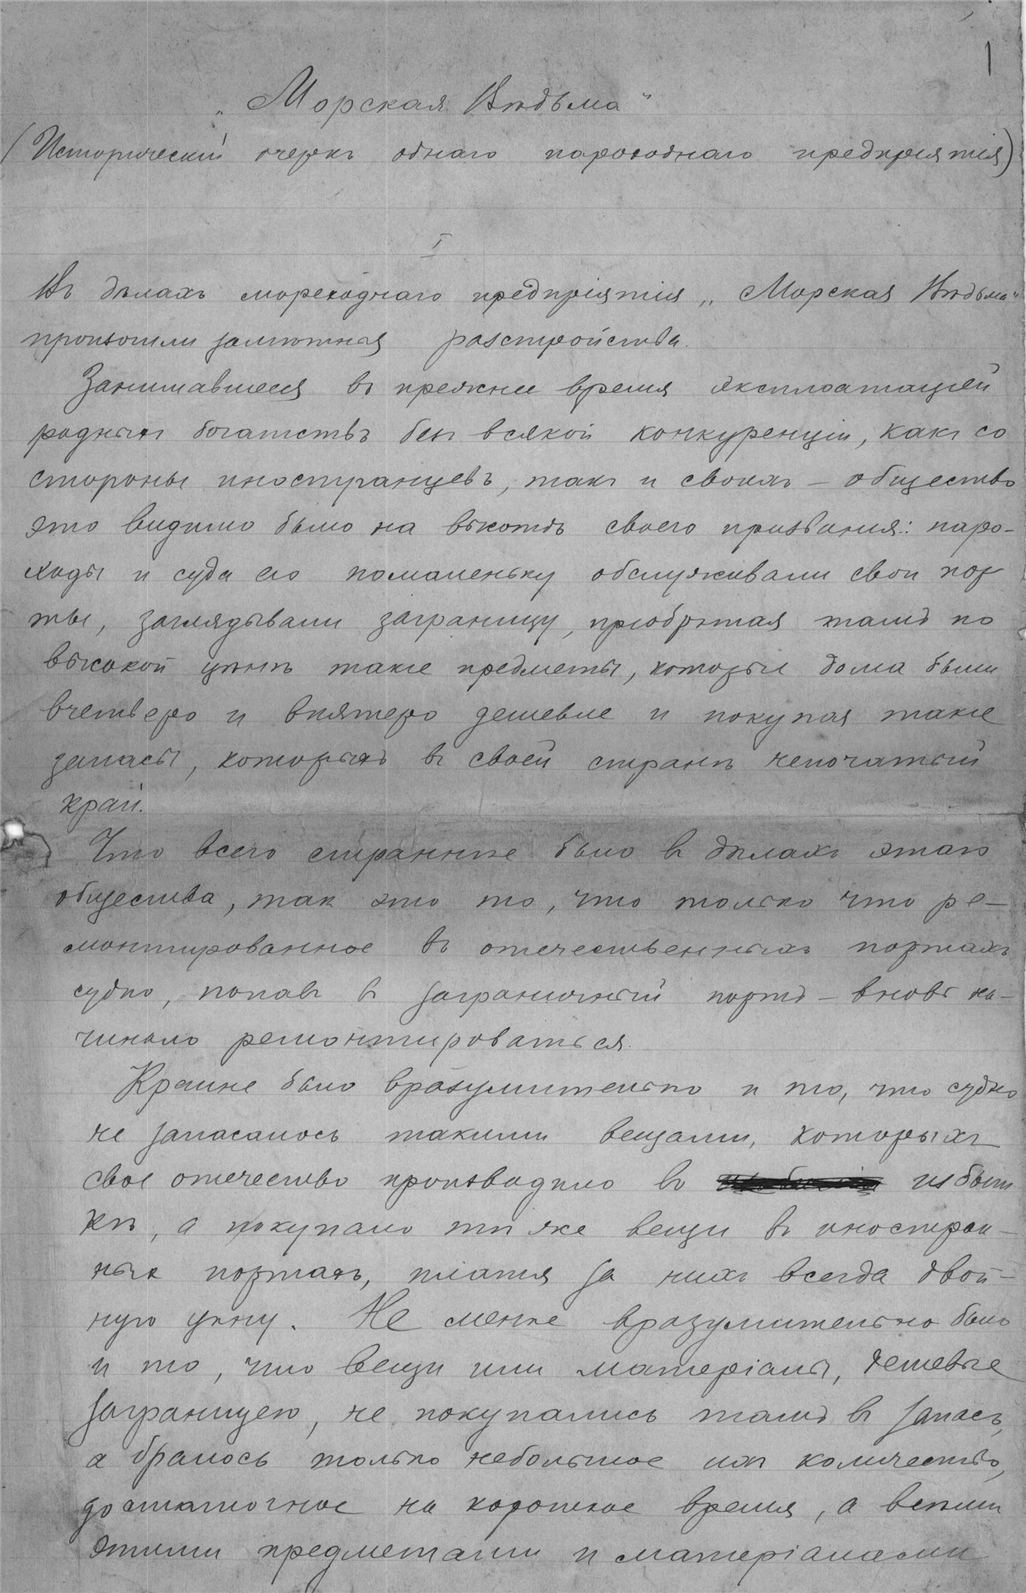 1
„Морская Вѣдьма“
(Историческій очеркъ однаго пароходнаго предпріятія)
I
Въ дѣлахъ мореходнаго предпріятія „Морская Вѣдьма“
произошли замѣтныя разстройства.
Занимавшееся въ прежнее время эксплоатаціей
родныхъ богатствъ безъ всякой конкуренціи, какъ со
стороны иностранцевъ, такъ и своихъ – общество
это видимо было на высотѣ своего призванія: паро-
ходы и суда его помаленьку обслуживали свои пор
ты, заглядывали заграницу, пріобрѣтая тамъ по
высокой цѣнѣ такіе предметы, которые дома были
вчетверо и впятеро дешевле и покупая такіе
запасы, которыхъ въ своей странѣ непочатый
край.
Что всего страннѣе было въ дѣлахъ этаго
общества, такъ это то, что только что ре-
монтированное въ отечественныхъ портахъ
судно, попавъ въ заграничный портъ – вновь на-
чинало ремонтироваться.
Крайне было вразумительно и то, что судно
не запасалось такими вещами, которыхъ
свое отечество производило во избыт
кѣ, а покупало тѣ же вещи въ иностран-
ныхъ портахъ, платя за нихъ всегда двой-
ную цѣну. Не менѣе вразумительно было
и то, что вещи или матеріалы, дешевые
заграницею, не покупались тамъ въ запасъ,
а бралось только небольшое ихъ количество,
достаточное на короткое время, а всѣми
этими предметами и матеріалами